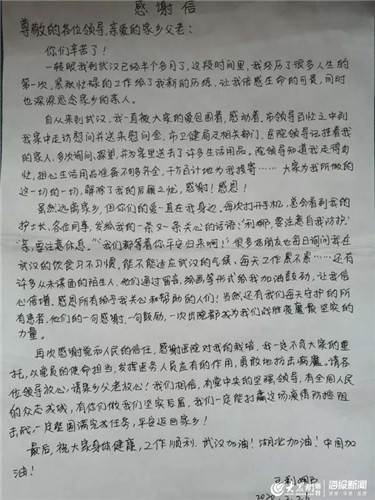 感谢信
尊敬的各位领导、亲爱的家乡父老:
你们辛苦了!
一转眼我到武汉已经半个多月了,这段时间里,我经历了很多人生的
第一次,紧张忙碌的工作给了我新的历练,让我倍感生命的可贵,同时
也深深思念家乡的亲人。
自从来到武汉,我一直被大家的爱包围着,感动着。市领导百忙之中到
我家中走访慰问并送来慰问金,市卫健局及相关部门、医院领导记挂着我
的家人,多次询问、探望,并为家里送去了许多生活用品。院领导知道我走得匆
忙,担心生活用品准备不够齐全,千方百计地为我邮寄……大家为我所做的
这一切的一切,解除了我的后顾之忧,感谢!感恩!
虽然远离家乡,但你们的爱一直在我身边。每次打开手机,总会看到我的
护士长、各位同事,发给我的一条又一条关心的话语:“利娜,要注意自我防护”
等,要注意休息。”“我们都等着你平安归来啊!”很多好朋友也每日询问我在
武汉的饮食习不习惯,能不能适应武汉的气候,每天工作累不累……还有
许多从未谋面的陌生人,他们通过留言、绘画等形式给我加油鼓励,让我信
心倍增,感恩所有给予我关心和帮助的人们!当然,还有我们每天守护的所
有患者,他们的一句感谢,一句鼓励,一次出院都成为我们战胜疫魔最坚实的
力量。
再次感谢党和人民的信任,感谢医院对我的栽培,我一定不负大家的重
托,以党员的使命担当,发挥医务人员应有的作用,勇敢地抗击病魔。请各
位领导放心,请家乡父老放心!我们相信,有党中央的坚强领导,有全国人民
的众志成城,有你们做我们坚实后盾,我们一定能打赢这场疫情防控阻
击战,一定坚固满完成任务,平安返回家乡!
最后,祝大家身体健康,工作顺利,武汉加油!湖北加油!中国加
油!
大众网 海报新闻